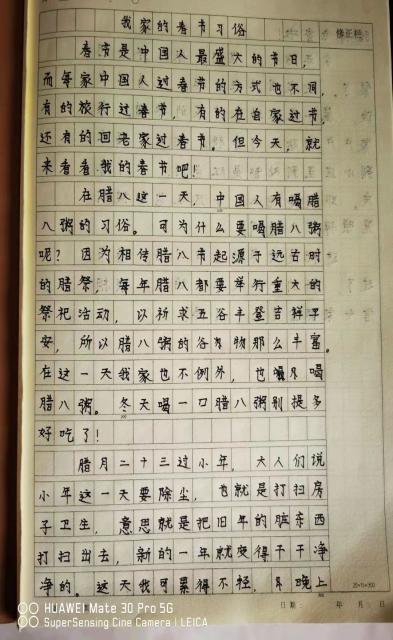 我家的春节习俗
修正栏
春节是中国人最盛大的节日，
而每家中国人过春节的方式也不同，
有的旅行过春节，有的在自家过节，
还有的回老家过春节。但今天，就
来看看我的春节吧！
在腊八这一天，中国人有喝腊
八粥的习俗。可为什么要喝腊八粥
呢？因为相传腊八节起源于远古时
的腊祭，每年腊八都要举行重大的
祭祀活动，以祈求五谷丰登吉祥平
安，所以腊八粥的谷物那么丰富。
在这一天我家也不例外，也喝
腊八粥。冬天喝一口腊八粥别提多
好吃了！
腊月二十三过小年，大人们说
小年这一天要除尘，也就是打扫房
子卫生，意思就是把旧年的脏东西
打扫出去，新的一年就变得干干净
净的。这天我可累得不轻，晚上
20×15=300
日期： 年 月 日
HUAWEI Mate 30 Pro 5G
SuperSensing Cine Camera | LEICA